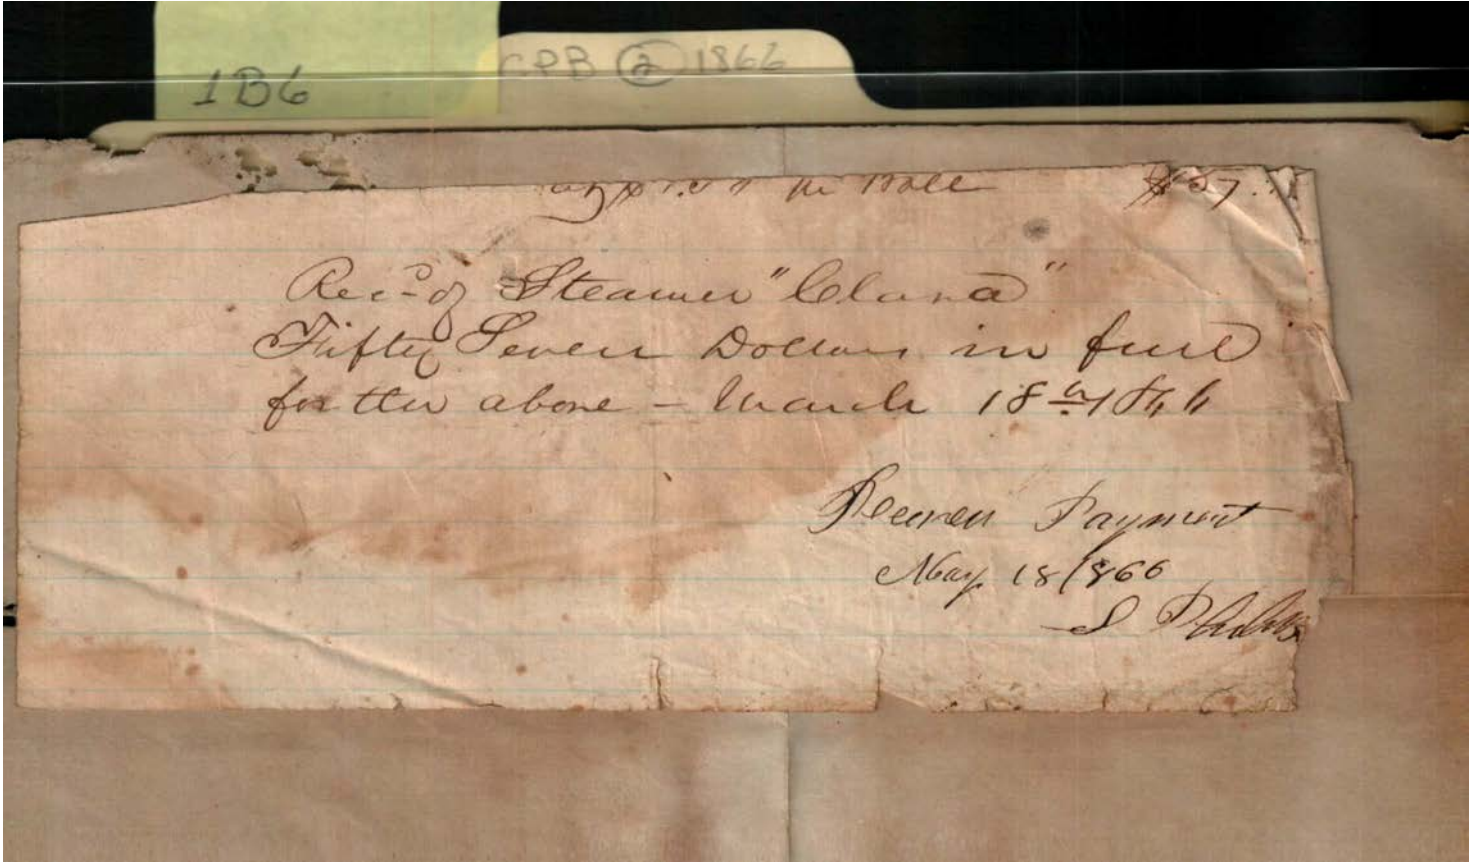 1B6
CPB 2 1866
Bale $57.
Rec'd of Steamer "Clara"
Fifty Seven Dollars in full
for the above - March 18th 1866
Received Payment
May 18/866
S